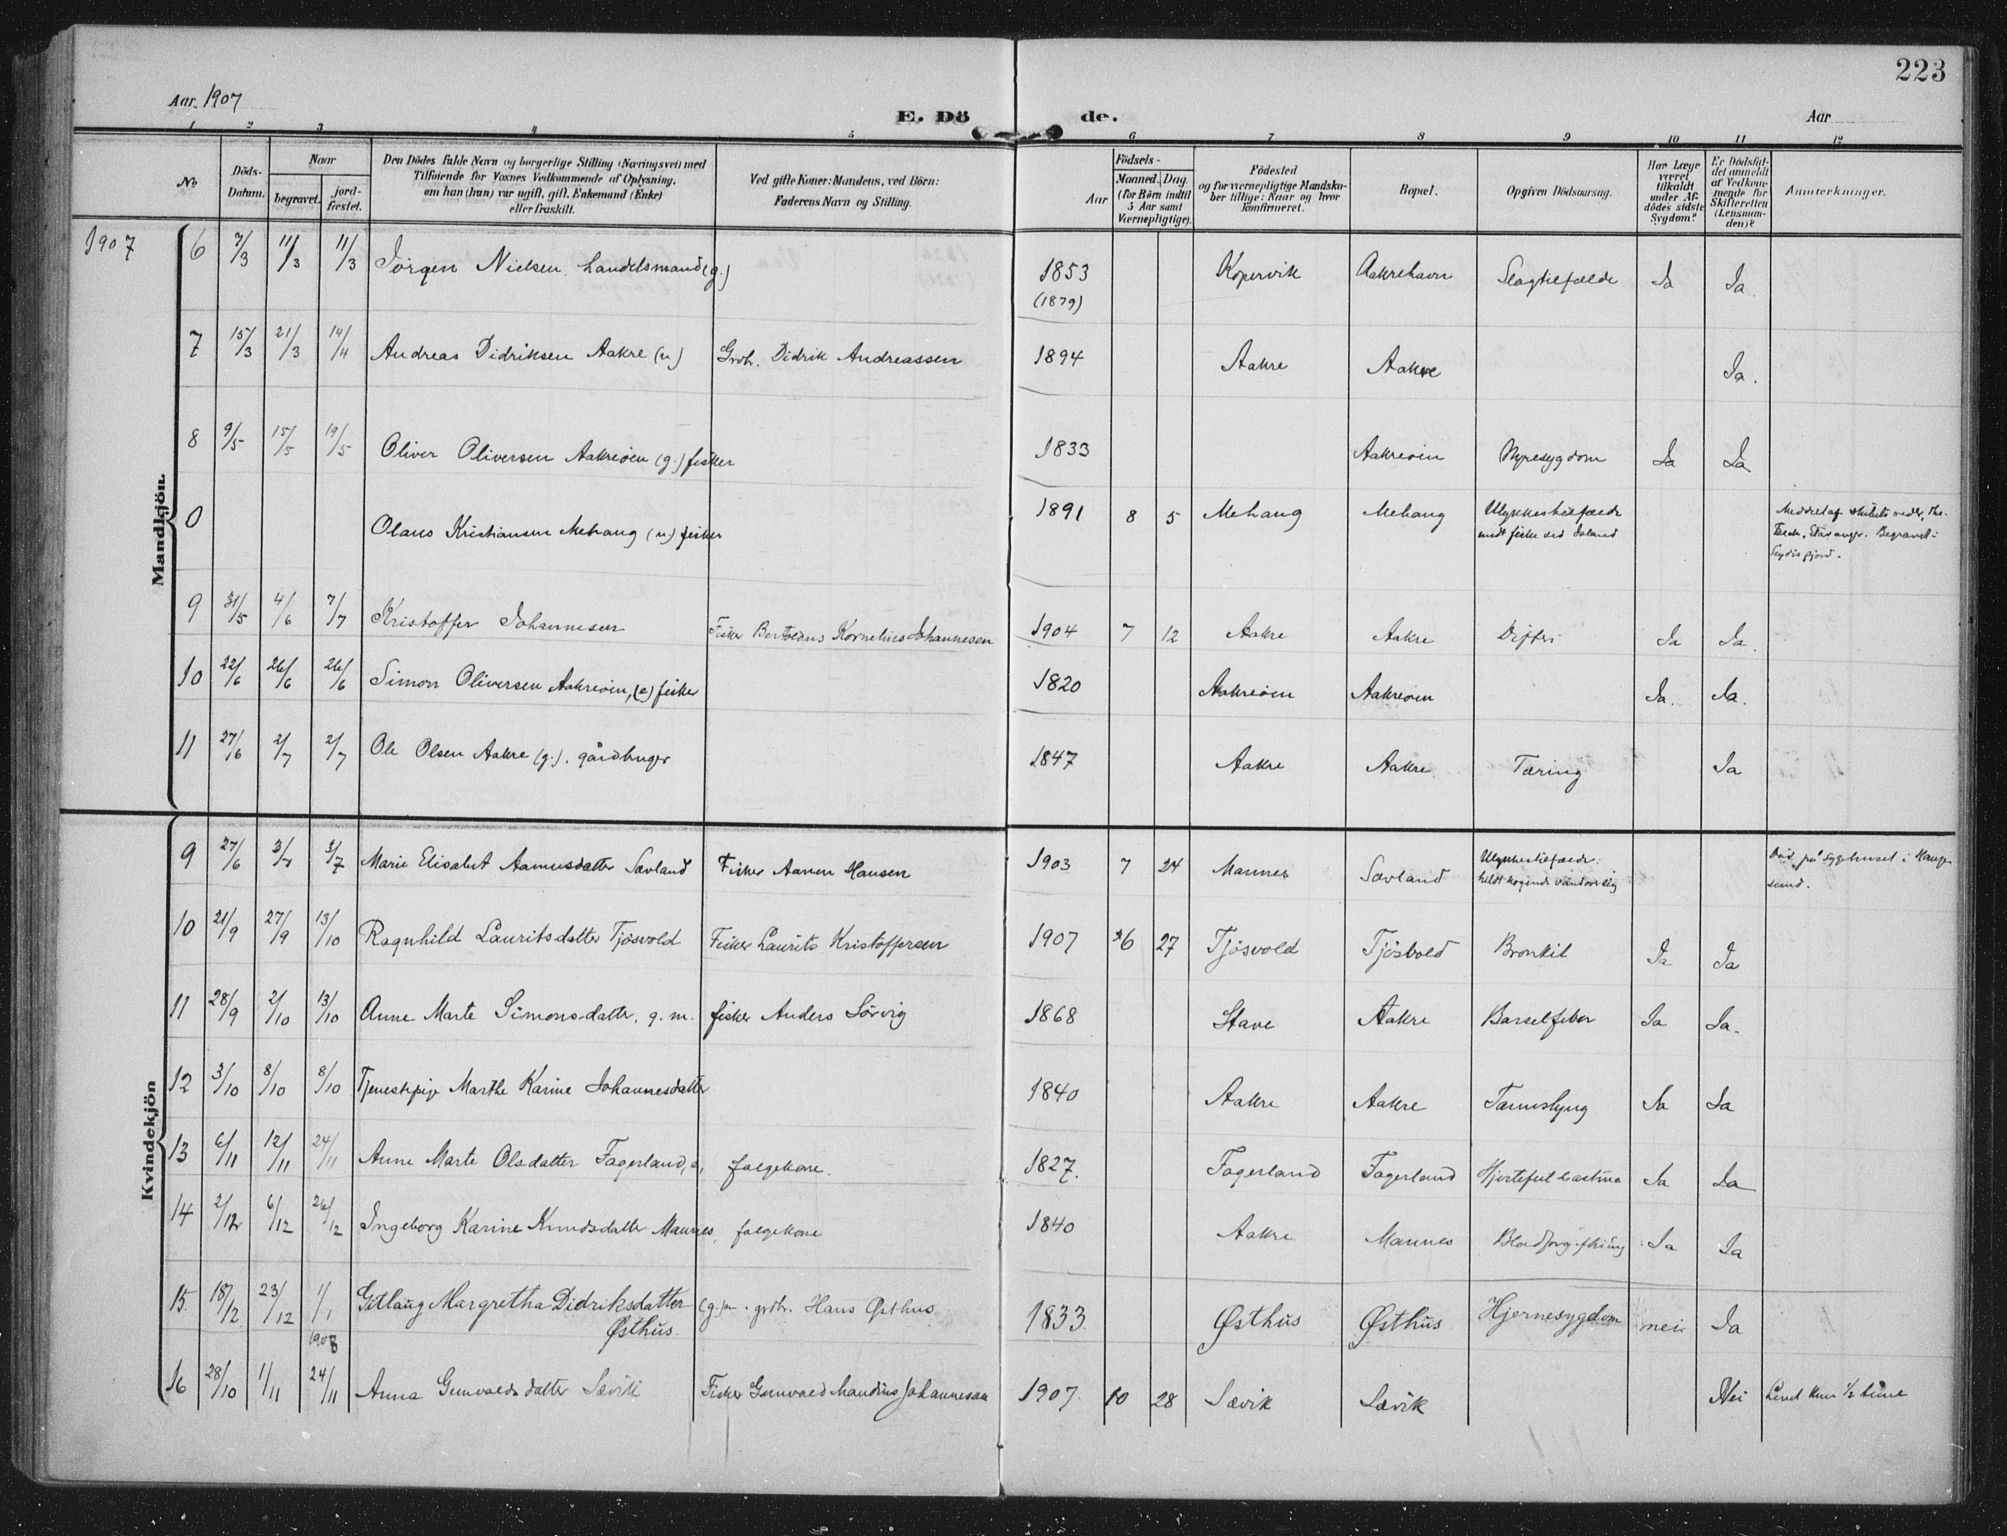 223
Aar. 1907
E. Döde.
Aar
1 2 3 4 5 6 7 8 9 10 11 12
No
Döds-Datum.
Naar
begravet.
jord-fæstet.
Den Dödes fulde Navn og borgerlige Stilling (Næringsvei) med
Tilföiende for Voxnes Vedkommende af Oplysning,
om han (hun) var ugift, gift, Enkemand (Enke)
eller fraskilt.
Ved gifte Koner: Mandens, ved Börn:
Faderens Navn og Stilling.
Födsels-
Aar
Maaned. Dag.
(for Börn indtil
5 Aar samt
Værnepligtige).
Födested
og for værnepligtige Mandska-
ber tillige: Naar og hvor
konfirmeret.
Bopæl.
Opgiven Dödsaarsag.
Har Læge
været
tilkaldt
under Af-
dödes sidste
Sygdom?
Er Dödsfal-
det anmeldt
af Vedkom-
mende for
Skifteretten
(Lensman-
den)?
Anmærkninger.
1907
Mandkjön.
6 7/3 11/3 11/3 Jörgen Nielsen handelsmand (g.) 1853 (1879) Kopervik Aakrehavn Slagtilfælde Ja Ja.
7 15/3 21/3 14/4 Andreas Didriksen Aakre (u) Grdbr. Didrik Andreassen 1894 Aakre Aakre Ja.
8 9/5 15/5 19/5 Oliver Oliversen Aakreöen (g.) fisker 1833 Aakreöen Nyresygdom Ja Ja
0 Olaus Kristiansen Mehaug (u) fisker 1891 8 5 Mehaug Mehaug Ulykkestilfælde
under fiske ved Island
Meddelt af skibets reder,
Stavanger. Begravet
Seydisfjord.
9 31/5 4/6 7/7 Kristoffer Johannesen Fisker Kornelius Johannesen 1904 7 12 Aakre Aakre Difteri Ja Ja.
10 22/6 26/6 26/6 Simon Oliversen Aakreöen, (e) fisker 1820 Aakreöen Aakreöen Ja. Ja.
11 27/6 2/7 2/7 Ole Olsen Aakre (g.). gårdbruger 1847 Aakre Aakre Tæring Ja
Kvindekjön
9 27/6 3/7 3/7 Marie Elisabet Aamusdatter Sævland Fisker Aamun Hansen 1903 7 24 Mannes Sævland Ulykkestilfælde:
heldt kogende vand over sig
Död på sygehuset i Hauge-
sund.
10 21/9 27/9 13/10 Ragnhild Lauritsdatter Tjösvold Fisker Laurits Kristoffersen 1907 6 27 Tjösvold Tjösvold Bronkit Ja Ja
11 28/9 2/10 13/10 Anne Marte Simonsdatter, g. m. fisker Anders Sörvig 1868 Stave Aakre Barselfeber Ja Ja.
12 3/10 8/10 8/10 Tjenestepige Marthe Karine Johannesdatter 1840 Aakre Aakre Tarmslyng Ja Ja
13 6/11 12/11 24/11 Anne Marte Olsdatter Fagerland, e, folgekone. 1827. Fagerland Fagerland Hjertefeil & astma Ja Ja
14 2/12 6/12 26/12 Ingeborg Karine Knudsdatter Mannes, folgekone 1840 Aakre Mannes Blodforgiftning Ja Ja
15 18/12 23/12 1/1 1908 Gitlaug Margretha Didriksdatter
Østhus.
(g.) m. grdbr. Hans Østhus 1833. Østhus Østhus Hjernesygdom nei Ja
16 28/10 1/11 24/11 Anna Gunvaldsdatter Sævik Fisker Gunvald Mandius Johannesen 1907 10 28 Sævik Sævik Nei Levet kun 1/2 time